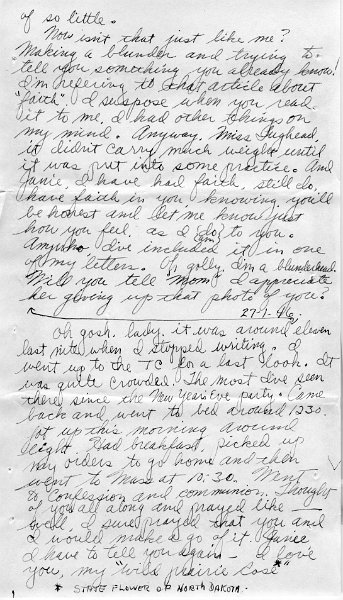 of so little.
Now isn't that just like me?
Making a blunder and trying to
tell you something you already know!
I'm refering to that article about
faith. I suspose when you read
it to me, I had other things on
my mind. Anyway, Miss Fughead,
it didn't carry much weight until
it was put into some practice. And
Janie, I have had faith, still do,
have faith in you knowing you'll
be honest and let me know just
how you feel, as I do to you.
Anywho I've included it in one
of my letters. Oh, golly, I'm a blunderhead.
Will you tell Mom I appreciate
her giving up that photo of you?
27-1-46
Oh gosh, baby, it was around eleven
last nite when I stopped writing. I
went up to the TC for a last look. It
was quite crowded. The most I've seen
there since the New Years eve party. Came
back and went to bed around 1230.
Got up this morning around
eight. Had breakfast, picked up
my orders to go home and then
went to Mass at 10:30. Went
to Confession and communion. Thought
of you all along and prayed like —
well, I sure prayed that you and
I would make a go of it. Janie
I have to tell you again — I love
you, my "wild prairie rose" *
* STATE FLOWER OF NORTH DAKOTA.